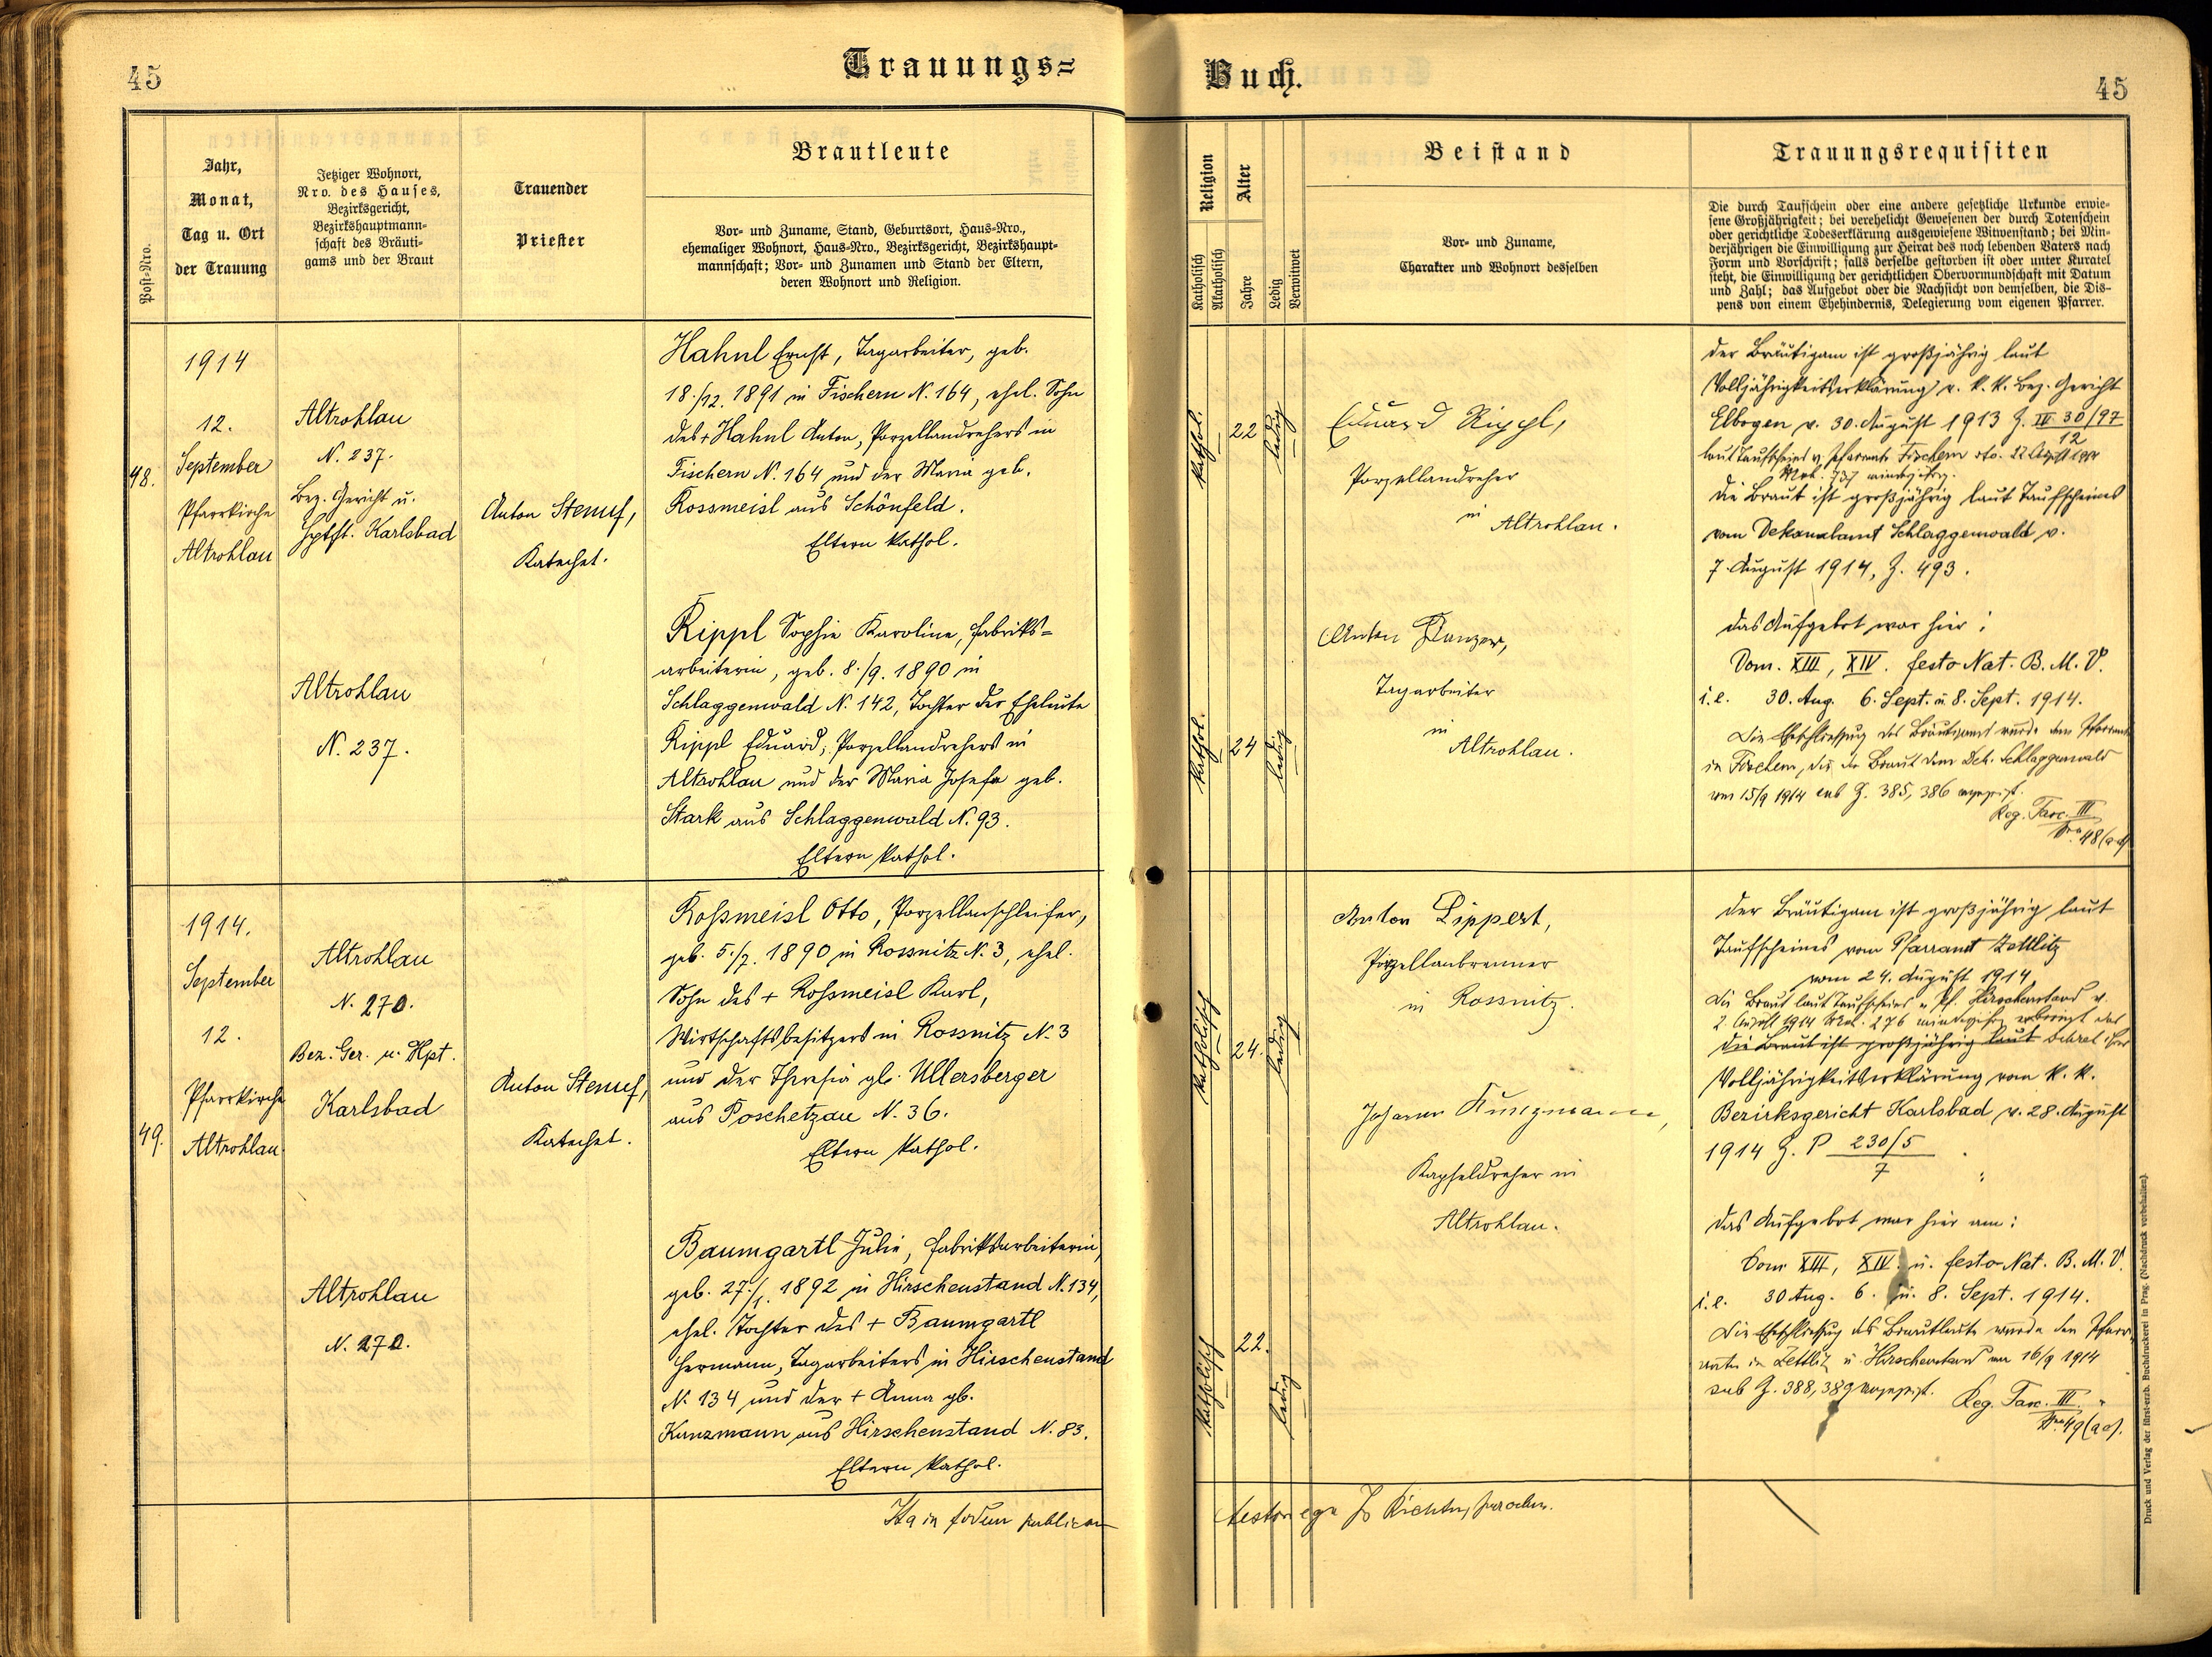 45
Trauungs=
Post-Nro.
Jahr,
Monat,
Tag u. Ort
der Trauung
Jetziger Wohnort,
Nro. des Hauses,
Bezirksgericht,
Bezirkshauptmann-
schaft des Bräuti-
gams und der Braut
Trauender
Priester
Brautleute
Vor- und Zuname, Stand, Geburtsort, Haus-Nro.,
ehemaliger Wohnort, Haus-Nro., Bezirksgericht, Bezirkshaupt-
mannschaft; Vor- und Zunamen und Stand der Eltern,
deren Wohnort und Religion.
48.
1914
12.
September
Pfarrkirche
Altrohlau
Altrohlau
N. 237.
Bez. Gericht u.
Hptft. Karlsbad
Anton
Katechet.
Hahnl Ernst, Tagarbeiter, geb.
18./12. 1891 in Fischern N. 164, ehel. Sohn
des + Hahnl Anton, Porzellandrehers in
Fischern N. 164 und der Maria geb.
Rossmeisl aus Schönfeld.
Eltern kathol.
Altrohlau
N. 237.
Rippl Sophie Karoline, Fabriks=
arbeiterin, geb. 8./9. 1890 in
Schlaggenwald N. 142, Tochter der Eheleute
Rippl Eduard, Porzellandrehers in
Altrohlau und der Maria Josefa geb.
Stark aus Schlaggenwald N. 93.
Eltern kathol.
49.
1914.
September
12.
Pfarrkirche
Altrohlau
Altrohlau
N. 270.
Bez. Ger. u. Hpt.
Karlsbad
Anton
Katechet.
Roßmeisl Otto, Porzellanschleifer,
geb. 5./7. 1890 in Rossnitz N. 3, ehel.
Sohn des + Roßmeisl Karl,
Wirtschaftsbesitzers in Rossnitz N. 3
und der Theresia gb. Ullersberger
aus Poschetzau N. 36.
Eltern kathol.
Altrohlau
N. 270.
Baumgartl Julie, Fabriksarbeiterin,
geb. 27./1. 1892 in Hirschenstand N. 134,
ehel. Tochter des + Baumgartl
Hermann, Tagarbeiters in Hirschenstand
N. 134 und der + Anna gb.
Kunzmann aus Hirschenstand N. 83.
Eltern kathol.
Ita in fidem publicam
Buch.
45
Religion
Katholisch
Akatholisch
Alter
Jahre
Ledig
Verwitwet
Beistand
Vor- und Zuname,
Charakter und Wohnort desselben
Trauungsrequisiten
Die durch Taufschein oder eine andere gesetzliche Urkunde erwie-
sene Großjährigkeit; bei verehelicht Gewesenen der durch Totenschein
oder gerichtliche Todeserklärung ausgewiesene Witwenstand; bei Min-
derjährigen die Einwilligung zur Heirat des noch lebenden Vaters nach
Form und Vorschrift; falls derselbe gestorben ist oder unter Kuratel
steht, die Einwilligung der gerichtlichen Obervormundschaft mit Datum
und Zahl; das Aufgebot oder die Nachsicht von demselben, die Dis-
pens von einem Ehehindernis, Delegierung vom eigenen Pfarrer.
kathol.
22
ledig
Eduard Rippl,
Porzellandreher
in
Altrohlau.
Der Bräutigam ist großjährig laut
Volljährigkeitserklärung v. k. k. Bez. Gericht
Elbogen v. 30. August 1913 Z. IV 30/97
12
laut Taufschein v. Pfarramte Fischern dto. 22 August 1914
737 minderjährig.
Die Braut ist großjährig laut Taufscheines
vom Dekanalamt Schlaggenwald v.
7. August 1914, Z. 493.
kathol.
24
ledig
Anton
Tagarbeiter
in
Altrohlau.
Das Aufgebot war hier:
Dom. XIII, XIV. festo Nat. B. M. V.
i. e. 30. Aug. 6. Sept. u. 8. Sept. 1914.
Die Eheschließung des Bräutigams wurde dem Pfarramte
in Fischern, die der Braut dem Dek. Schlaggenwald
am 15/9 1914 sub Z. 385, 386 angezeigt.
Reg. Fasc. III
Nro. 48 (a-d)
katholisch
24.
ledig
Anton Lippert,
Porzellanbrenner
in Rossnitz.
Der Bräutigam ist großjährig laut
Taufscheines vom Pfarramt Zettlitz
vom 24. August 1914,
Die Braut laut Taufscheines v. Pf. Hirschenstand v.
2. August 1914 276 minderjährig
Die Braut ist großjährig laut
Volljährigkeitserklärung vom k. k.
Bezirksgericht Karlsbad v. 28. August
1914 Z. P 230/5
7
Johann Kunzmann,
Kapseldreher in
Altrohlau.
katholisch
22.
ledig
Das Aufgebot war hier am:
Dom XIII, XIV. u. festo Nat. B. M. V.
i. e. 30 Aug. 6. u. 8. Sept. 1914.
Die Eheschließung der Brautleute wurde den Pfarr-
ämtern in Zettlitz u. Hirschenstand am 16/9 1914
sub Z. 388, 389 angezeigt.
Reg. Fasc. III.
Nro. 49 (a-d).
testor ego
Druck und Verlag der fürst-erzb. Buchdruckerei in Prag. (Nachdruck vorbehalten).